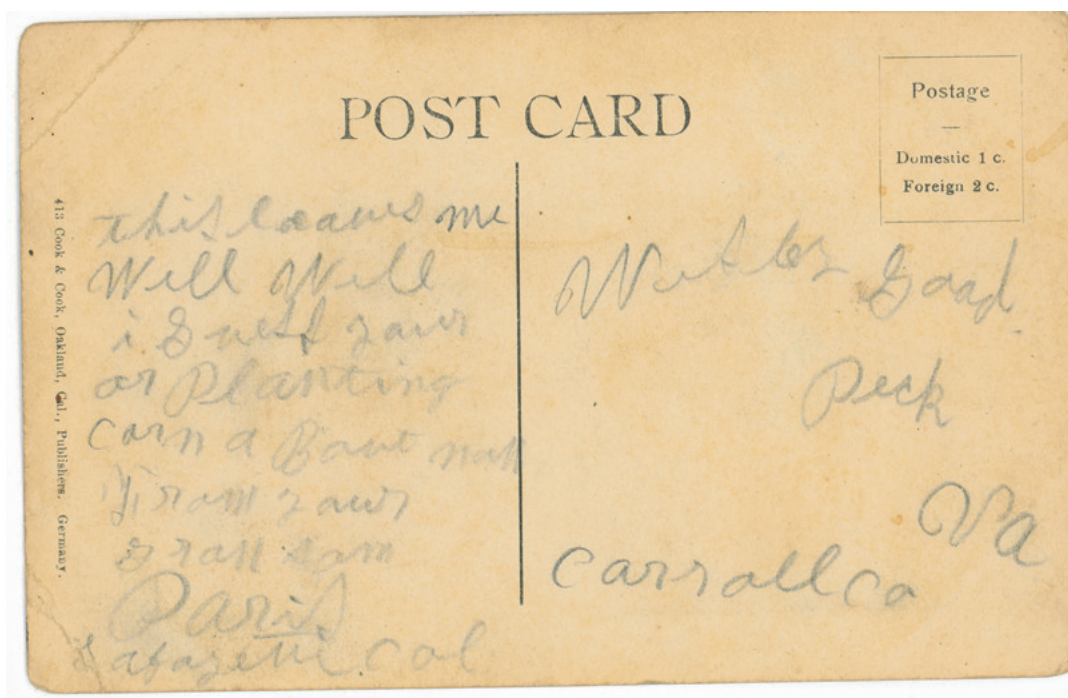 POST CARD
Postage
Domestic 1 c.
Foreign 2 c.
413 Cook & Cook, Oakland, Cal., Publishers. Germany.
this leaves me
Will Will
i Guess your
or Planting
Corn a Bout now
From your
gran son
Paris
Lafayette Cal
Good
Peck
Va
Carroll Co